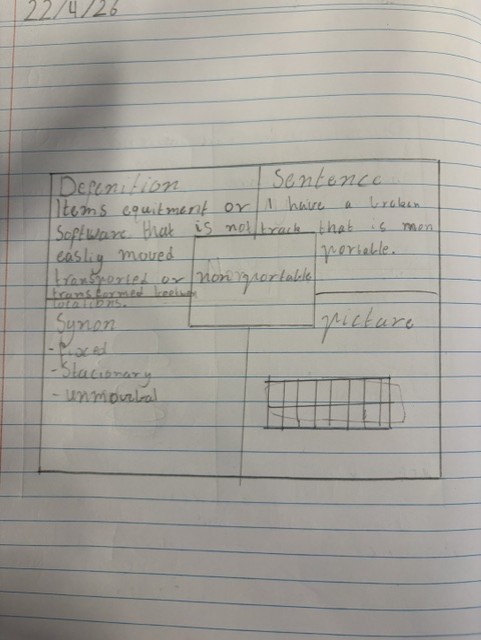 22/4/26
Defenition
Items equitment or
Software that is not
easliy moved
transported or
transformed
locations.
Sentence
I have a broken
track that is mon
portable.
nonportable
Synon
- fixed
- Stacionary
- unmovebal
picture